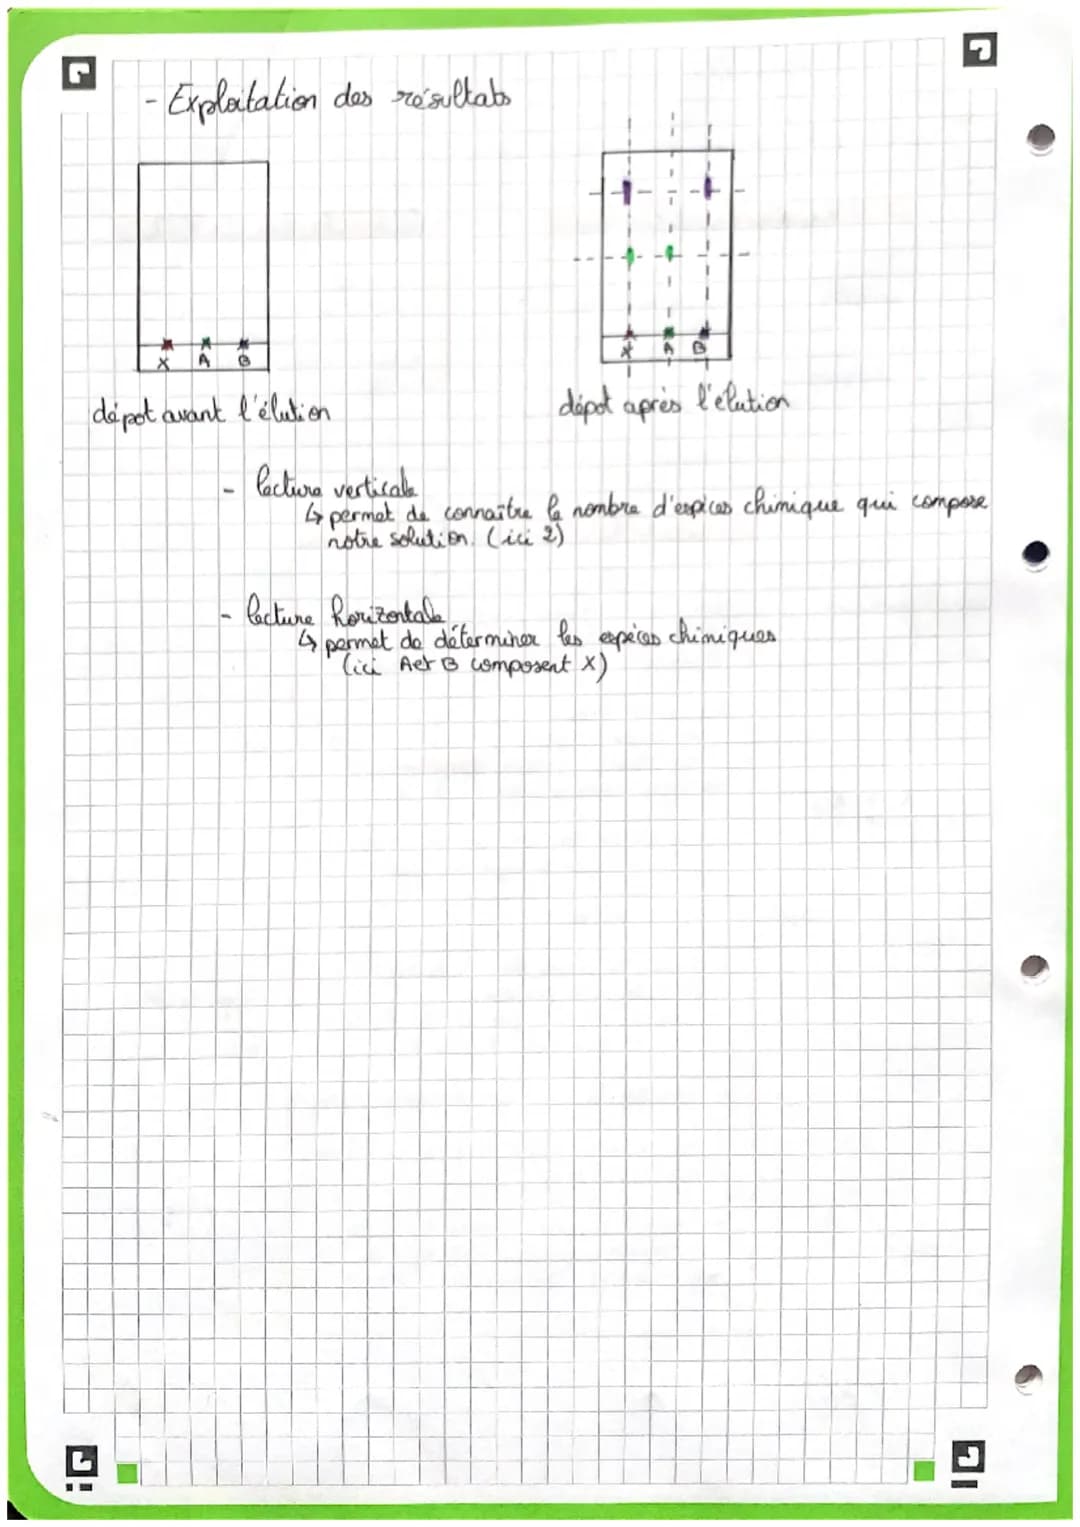 - Exploitation des résultats
X A B
X A B
dépot avant l'élution
dépot après l'elution
- lecture verticale
↳ permet de connaître le nombre d'espices chimique qui compose
notre solution. (ici 2)
- lecture horizontale
↳ permet de déterminer les espèces chimiques
(ici A et B composent X)